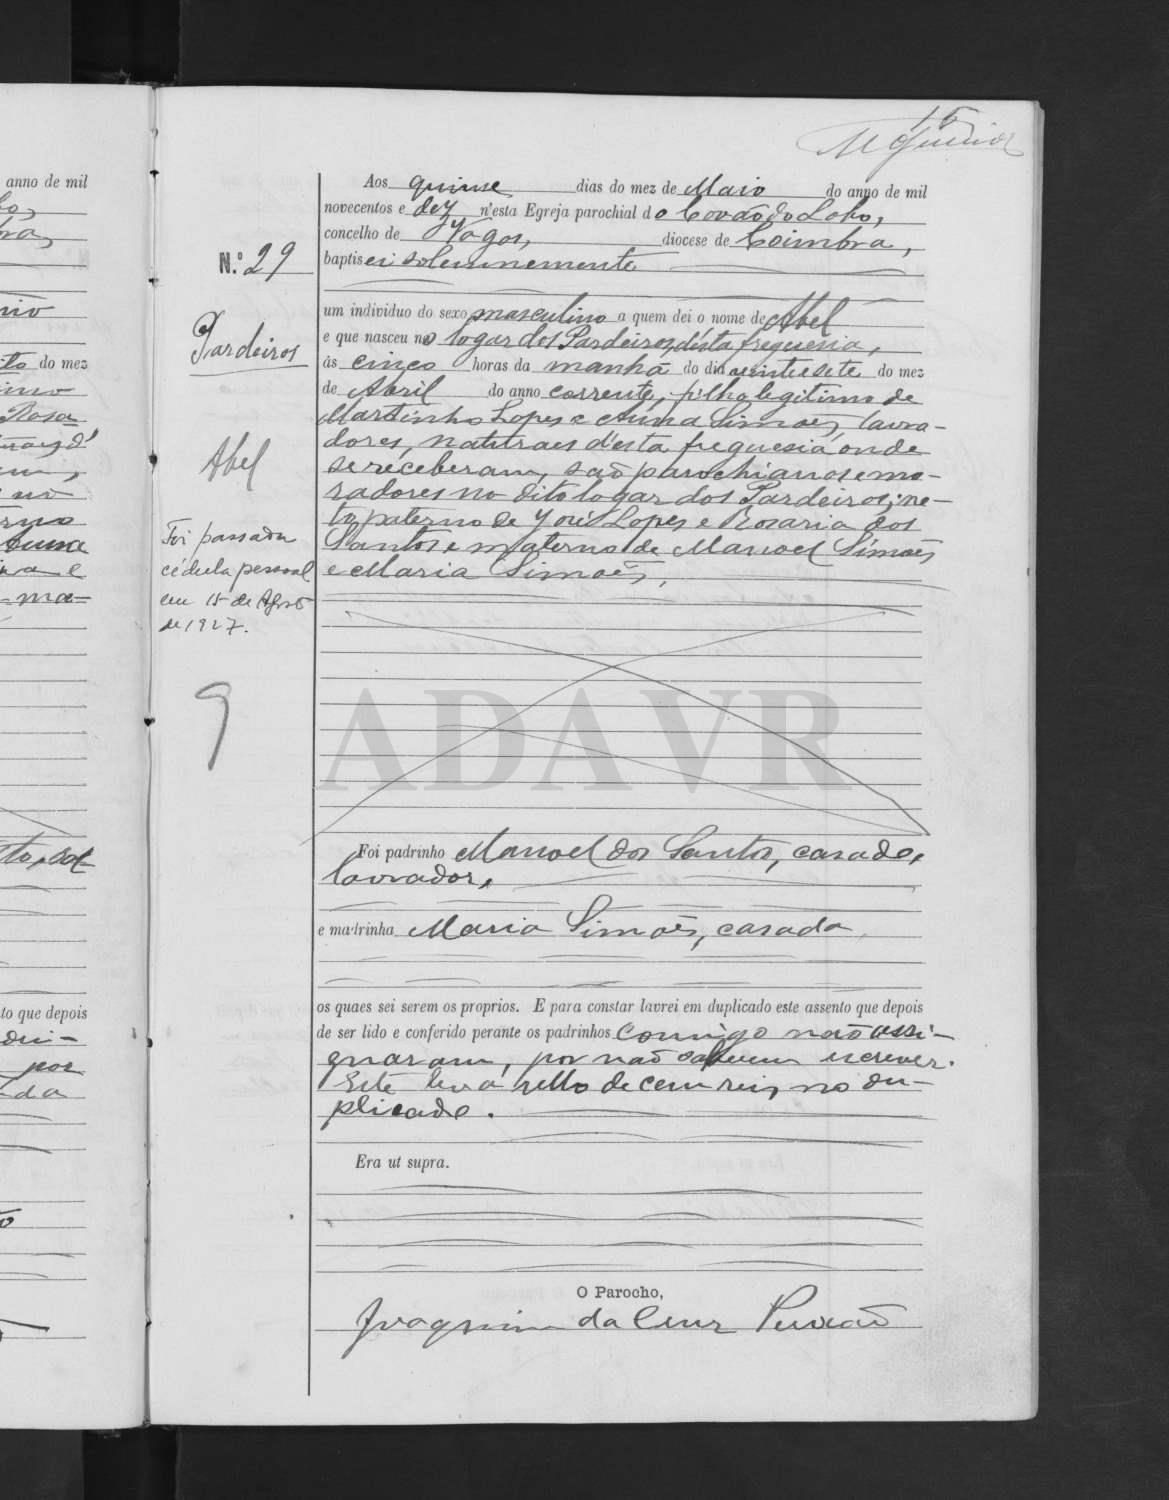 15
Aos quinse dias do mez de Maio do anno de mil
novecentos e dez n'esta Egreja parochial do Covão do Lobo,
concelho de Vagos, diocese de Coimbra,
N.º 29
baptisei solemnemente
um individuo do sexo masculino a quem dei o nome de Abel
Pardeiros
e que nasceu no logar dos Pardeiros, d'esta freguesia,
ás cinco horas da manhã do dia vinte e sete do mez
de Abril do anno corrente, filho legitimo de
Martinho Lopes e Anna Simões, lavra-
dores, naturaes d'esta freguesia onde
Abel
se receberam, são parochianos e mo-
radores no dito logar dos Pardeiros; ne-
to paterno de José Lopes e Rosaria dos
Santos e materno de Manoel Simões
e Maria Simões,
Foi passada
cédula pessoal
em 15 de Agosto
de 1927.
9
ADAVR
Foi padrinho Manoel dos Santos, casado,
lavrador,
e madrinha Maria Simões, casada
os quaes sei serem os proprios. E para constar lavrei em duplicado este assento que depois
de ser lido e conferido perante os padrinhos comigo não assi-
gnaram, por não saberem escrever.
Este leva sello de cem reis no du-
plicado.
Era ut supra.
O Parocho,
Joaquim da Cruz
anno de mil
do mez
Rosa
no
ma-
to que depois
por
da